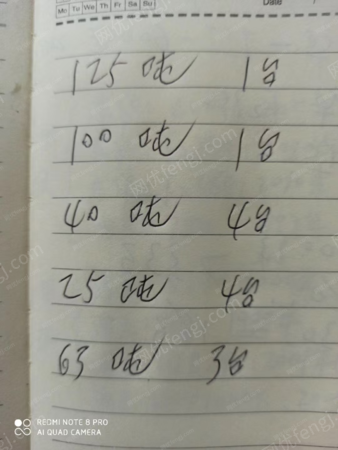 Mo Tu We Th Fr Sa Su
Date
125吨 1台
100吨 1台
40吨 4台
25吨 4台
63吨 3台
REDMI NOTE 8 PRO
AI QUAD CAMERA